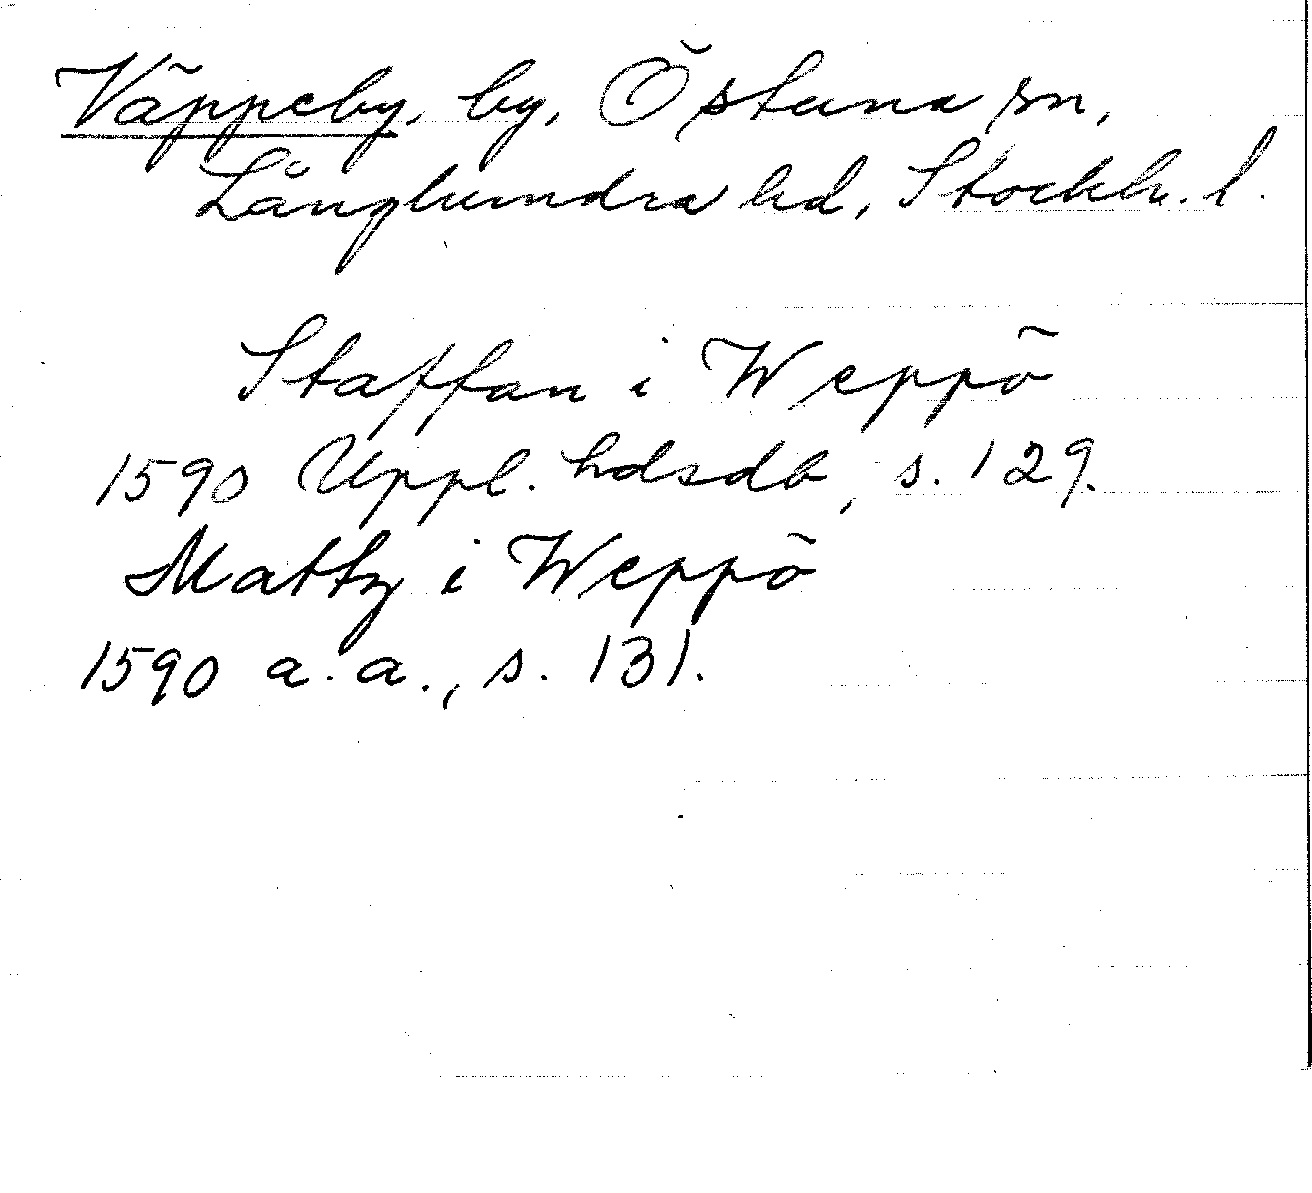 Väppeby, by, Östuna sn,
Långhundra hd, Stockh. l.
Staffan i Weppö
1590 Uppl. hdsdb, s. 129.
Mattz i Weppö
1590 a. a., s. 131.